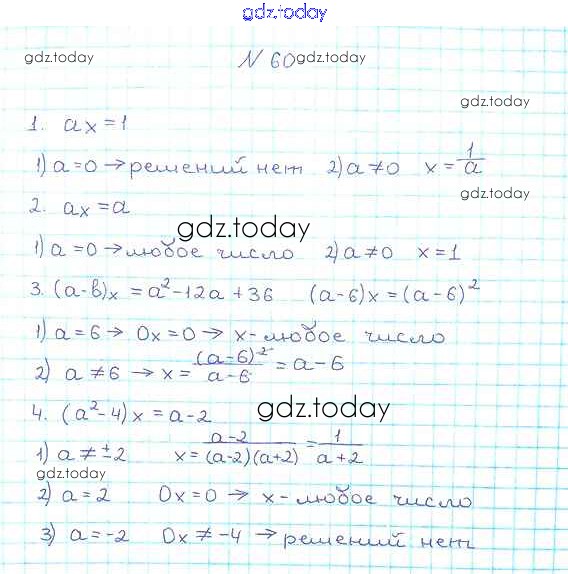 gdz.today
gdz.today N 60 gdz.today
gdz.today
1. ax=1
1) a=0 → решений нет 2) a≠0 x=1/a
gdz.today
2. ax=a
gdz.today
1) a=0 → любое число 2) a≠0 x=1
3. (a-в)x = a²-12a+36 (a-6)x=(a-6)²
1) a=6 → 0x=0 → x-любое число
2) a≠6 → x = (a-6)²/a-6 = a-6
4. (a²-4)x = a-2 gdz.today
1) a≠±2 x = a-2/(a-2)(a+2) = 1/a+2
gdz.today
2) a=2 0x=0 → x-любое число
3) a=-2 0x≠-4 → решений нет